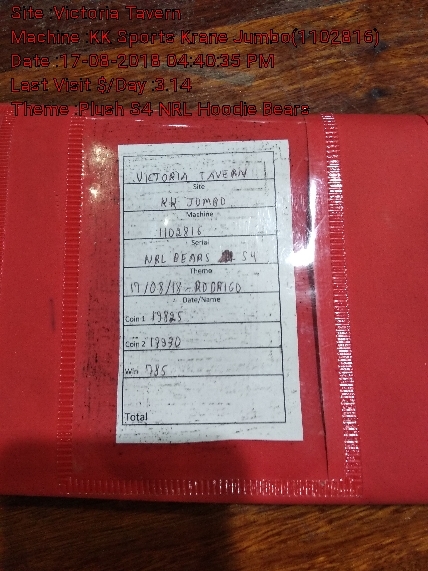 Site :Victoria Tavern
Machine :KK Sports Krane Jumbo(1102816)
Date :17-08-2018 04:40:35 PM
Last Visit $/Day :3.14
Theme :Plush S4 NRL Hoodie Bears
VICTORIA TAVERN
Site
KK JUMBO
Machine
1102816
Serial
NRL BEARS S4
Theme
17/08/18-RODRIGO
Date/Name
Coin 1 19825
Coin 2 18930
Win 785
Total